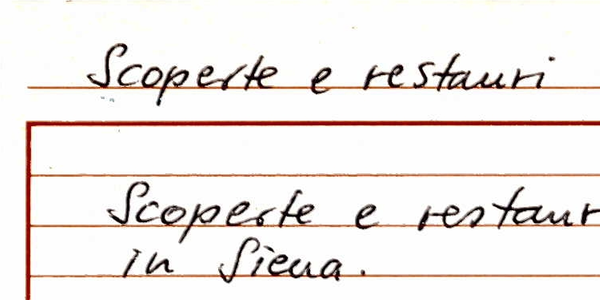 Scoperte e restauri
Scoperte e restaur
in Siena.